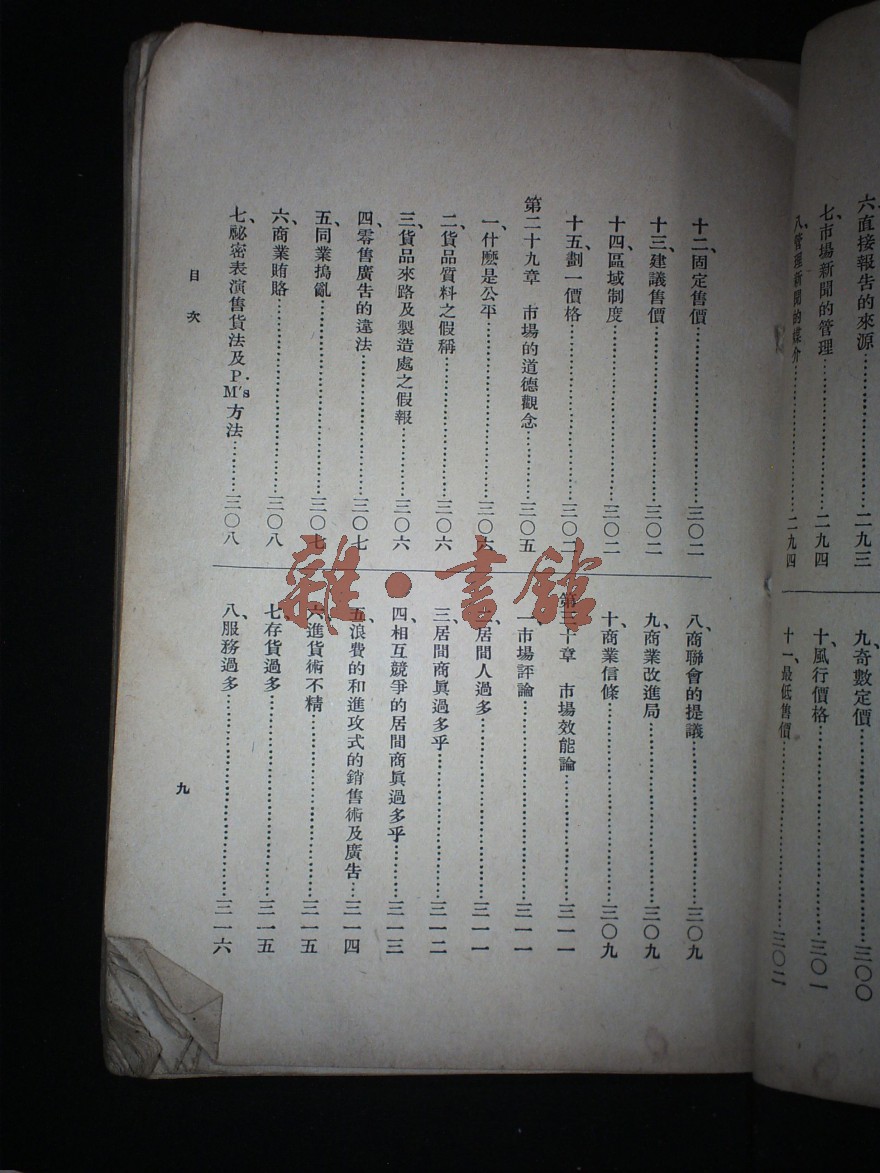 六、直接報告的來源…………二九三
七、市場新聞的管理…………二九四
八、管理新聞的媒介…………二九四
九、奇數定價…………三〇〇
十、風行價格…………三〇一
十一、最低售價…………三〇二
十二、固定售價…………三〇二
十三、建議售價…………三〇二
十四、區域制度…………三〇二
十五、劃一價格…………三〇二
第二十九章 市場的道德觀念…………三〇五
一、什麼是公平…………三〇六
二、貨品質料之假稱…………三〇六
三、貨品來路及製造處之假報…………三〇六
四、零售廣告的違法…………三〇七
五、同業搗亂…………三〇七
六、商業賄賂…………三〇八
七、祕密表演售貨法及P.M's方法…………三〇八
八、商聯會的提議…………三〇九
九、商業改進局…………三〇九
十、商業信條…………三〇九
第三十章 市場效能論…………三一一
一、市場評論…………三一一
二、居間人過多…………三一一
三、居間商眞過多乎…………三一二
四、相互競爭的居間商眞過多乎…………三一三
五、浪費的和進攻式的銷售術及廣告…三一四
六、進貨術不精…………三一五
七、存貨過多…………三一五
八、服務過多…………三一六
目次
九
雜·書館